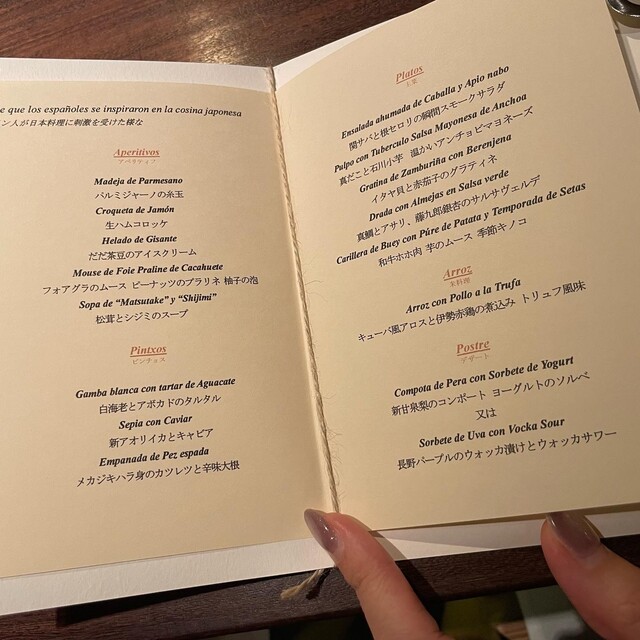 e que los españoles se inspiraron en la cosina japonesa
ン人が日本料理に刺激を受けた様な
Aperitivos
アペリティフ
Madeja de Parmesano
パルミジャーノの糸玉
Croqueta de Jamón
生ハムコロッケ
Helado de Gisante
だだ茶豆のアイスクリーム
Mouse de Foie Praline de Cacahuete
フォアグラのムース ピーナッツのプラリネ 柚子の泡
Sopa de “Matsutake” y “Shijimi”
松茸とシジミのスープ
Pintxos
ピンチョス
Gamba blanca con tartar de Aguacate
白海老とアボカドのタルタル
Sepia con Caviar
新アオリイカとキャビア
Empanada de Pez espada
メカジキハラ身のカツレツと辛味大根
Platos
主菜
Ensalada ahumada de Caballa y Apio nabo
関サバと根セロリの瞬間スモークサラダ
Pulpo con Tuberculo Salsa Mayonesa de Anchoa
真だこと石川小芋 温かいアンチョビマヨネーズ
Gratina de Zamburiña con Berenjena
イタヤ貝と赤茄子のグラティネ
Drada con Almejas en Salsa verde
真鯛とアサリ、藤九郎銀杏のサルサヴェルデ
Carillera de Buey con Púre de Patata y Temporada de Setas
和牛ホホ肉 芋のムース 季節キノコ
Arroz
米料理
Arroz con Pollo a la Trufa
キューバ風アロスと伊勢赤鶏の煮込み トリュフ風味
Postre
デザート
Compota de Pera con Sorbete de Yogurt
新甘泉梨のコンポート ヨーグルトのソルベ
又は
Sorbete de Uva con Vocka Sour
長野パープルのウォッカ漬けとウォッカサワー